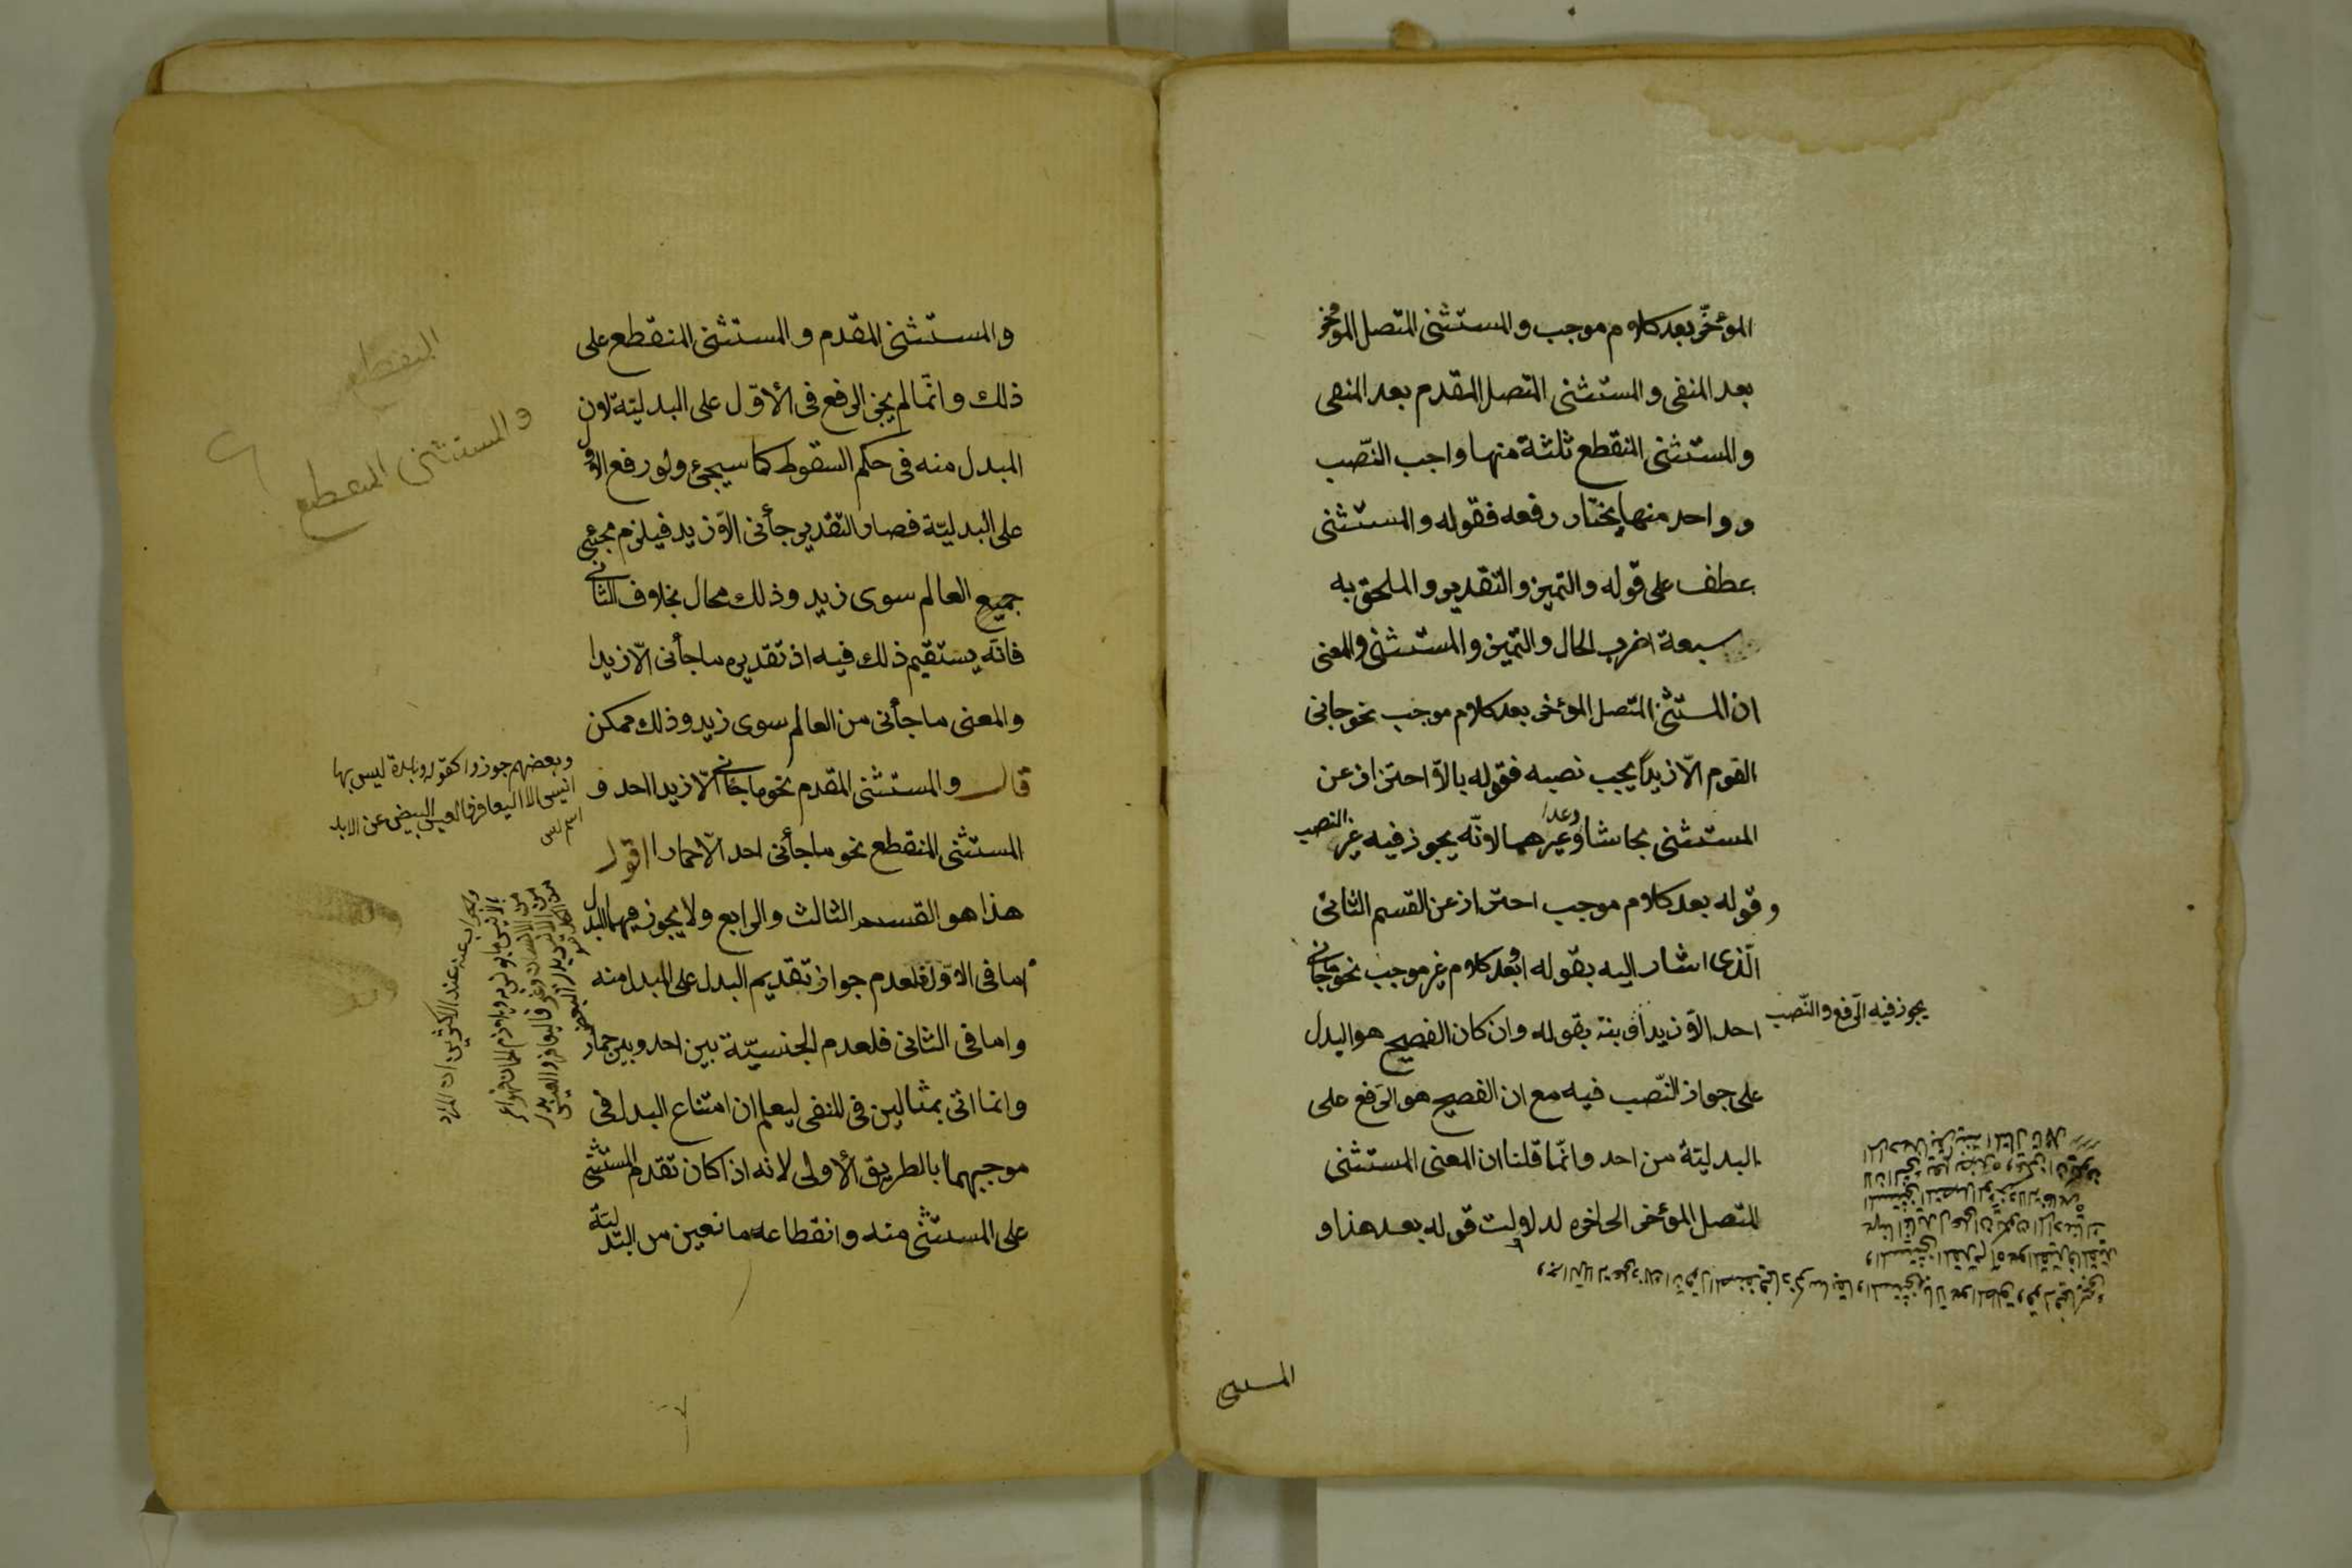 المؤخّر بعد كلام موجب والمستثنى المتصل المؤخر
بعد المنفى والمستثنى المتصل المقدم بعد المنفى
والمستثنى المنقطع ثلثة منها واجب النّصب
وواحد منها يختار رفعه فقوله والمستثنى
عطف على قوله والتميز والتقدير والملحق به
سبعة اضرب الحال والتميز والمستثنى والمعنى
ان المستثنى المتصل المؤخر بعد كلام موجب نحو جانى
القوم الّا زيداً يجب نصبه فقوله بالّا احتراز عن
المستثنى بحاشا وعدا وغيرهما لانّه يجوز فيه غير النصب
وقوله بعد كلام موجب احتراز عن القسم الثانى
الّذى اشار اليه بقوله او بعد كلام غير موجب نحو ما جانى
احد الّا زيدا وبنّه بقوله وان كان الفصيح هو البدل
يجوز فيه الرّفع والنّصب
على جواز النّصب فيه مع ان الفصيح هو الرّفع على
البدليّة من احد وانّما قلنا ان المعنى المستثنى
المتصل المؤخر الى اخره لدلولت قوله بعد هذا و
المستثنى
والمستثنى المقدم والمستثنى المنقطع على
ذلك وانّما لم يجز الرفع فى الأوّل على البدليّة لان
المبدل منه فى حكم السقوط كما سيجئ ولو رفع الاول
على البدليّة فصار التقدير جأنى الّا زيد فيلزم مجئ
جميع العالم سوى زيد وذلك محال بخلاف الثانى
فانّه يستقيم ذلك فيه اذ تقديره ما جأنى الّا زيدا
والمعنى ما جأنى من العالم سوى زيد وذلك ممكن
قال والمستثنى المقدم نحو ما جانى الّا زيدا احد و
المستثنى المنقطع نحو ما جأنى احد الّا حمارا اقول
هذا هو القسم الثالث والرابع ولا يجوز فيهما البدل
اما فى الاوّل فلعدم جواز تقديم البدل على المبدل منه
واما فى الثانى فلعدم الجنسيّة بين احد وبين حمار
وانما اتى بمثالين فى المنفى ليعلم ان امتناع البدل فى
موجبهما بالطريق الأولى لانه اذا كان تقدم المستثنى
على المستثنى منه وانقطاعه مانعين من البدليّة
المنقطع
والمستثنى المنقطع
وبعضهم جوزوا كقوله وبلدة ليس بها
انيس الا اليعافير والا العيس